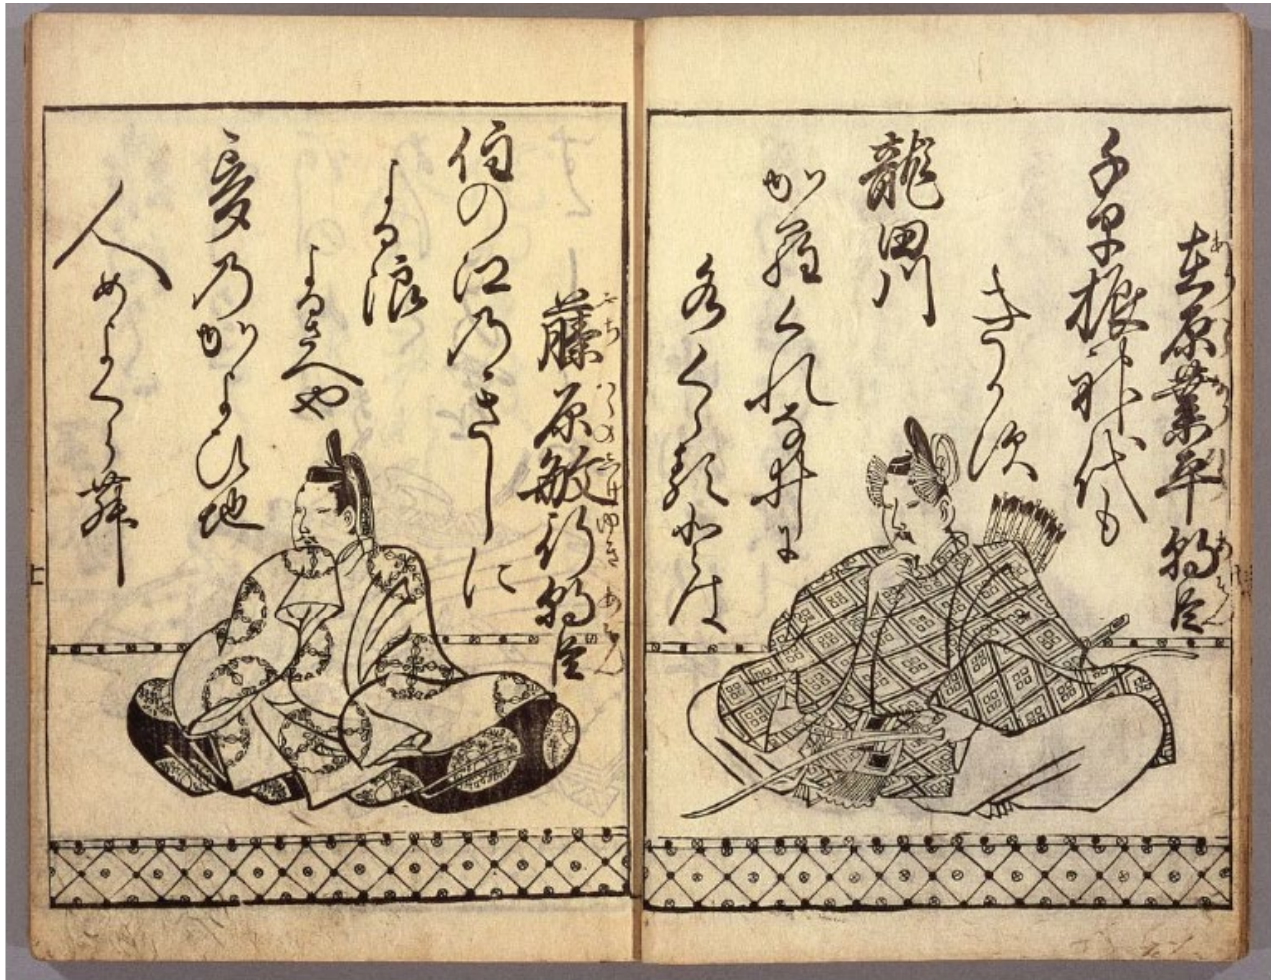 在原業平朝臣
千早振神代も
きかす
龍田川
か羅くれな井に
水くゝるとは
藤原敏行朝臣
住の江乃きしに
よる浪
よるさへや
夢乃かよひ地
人めよくら舞